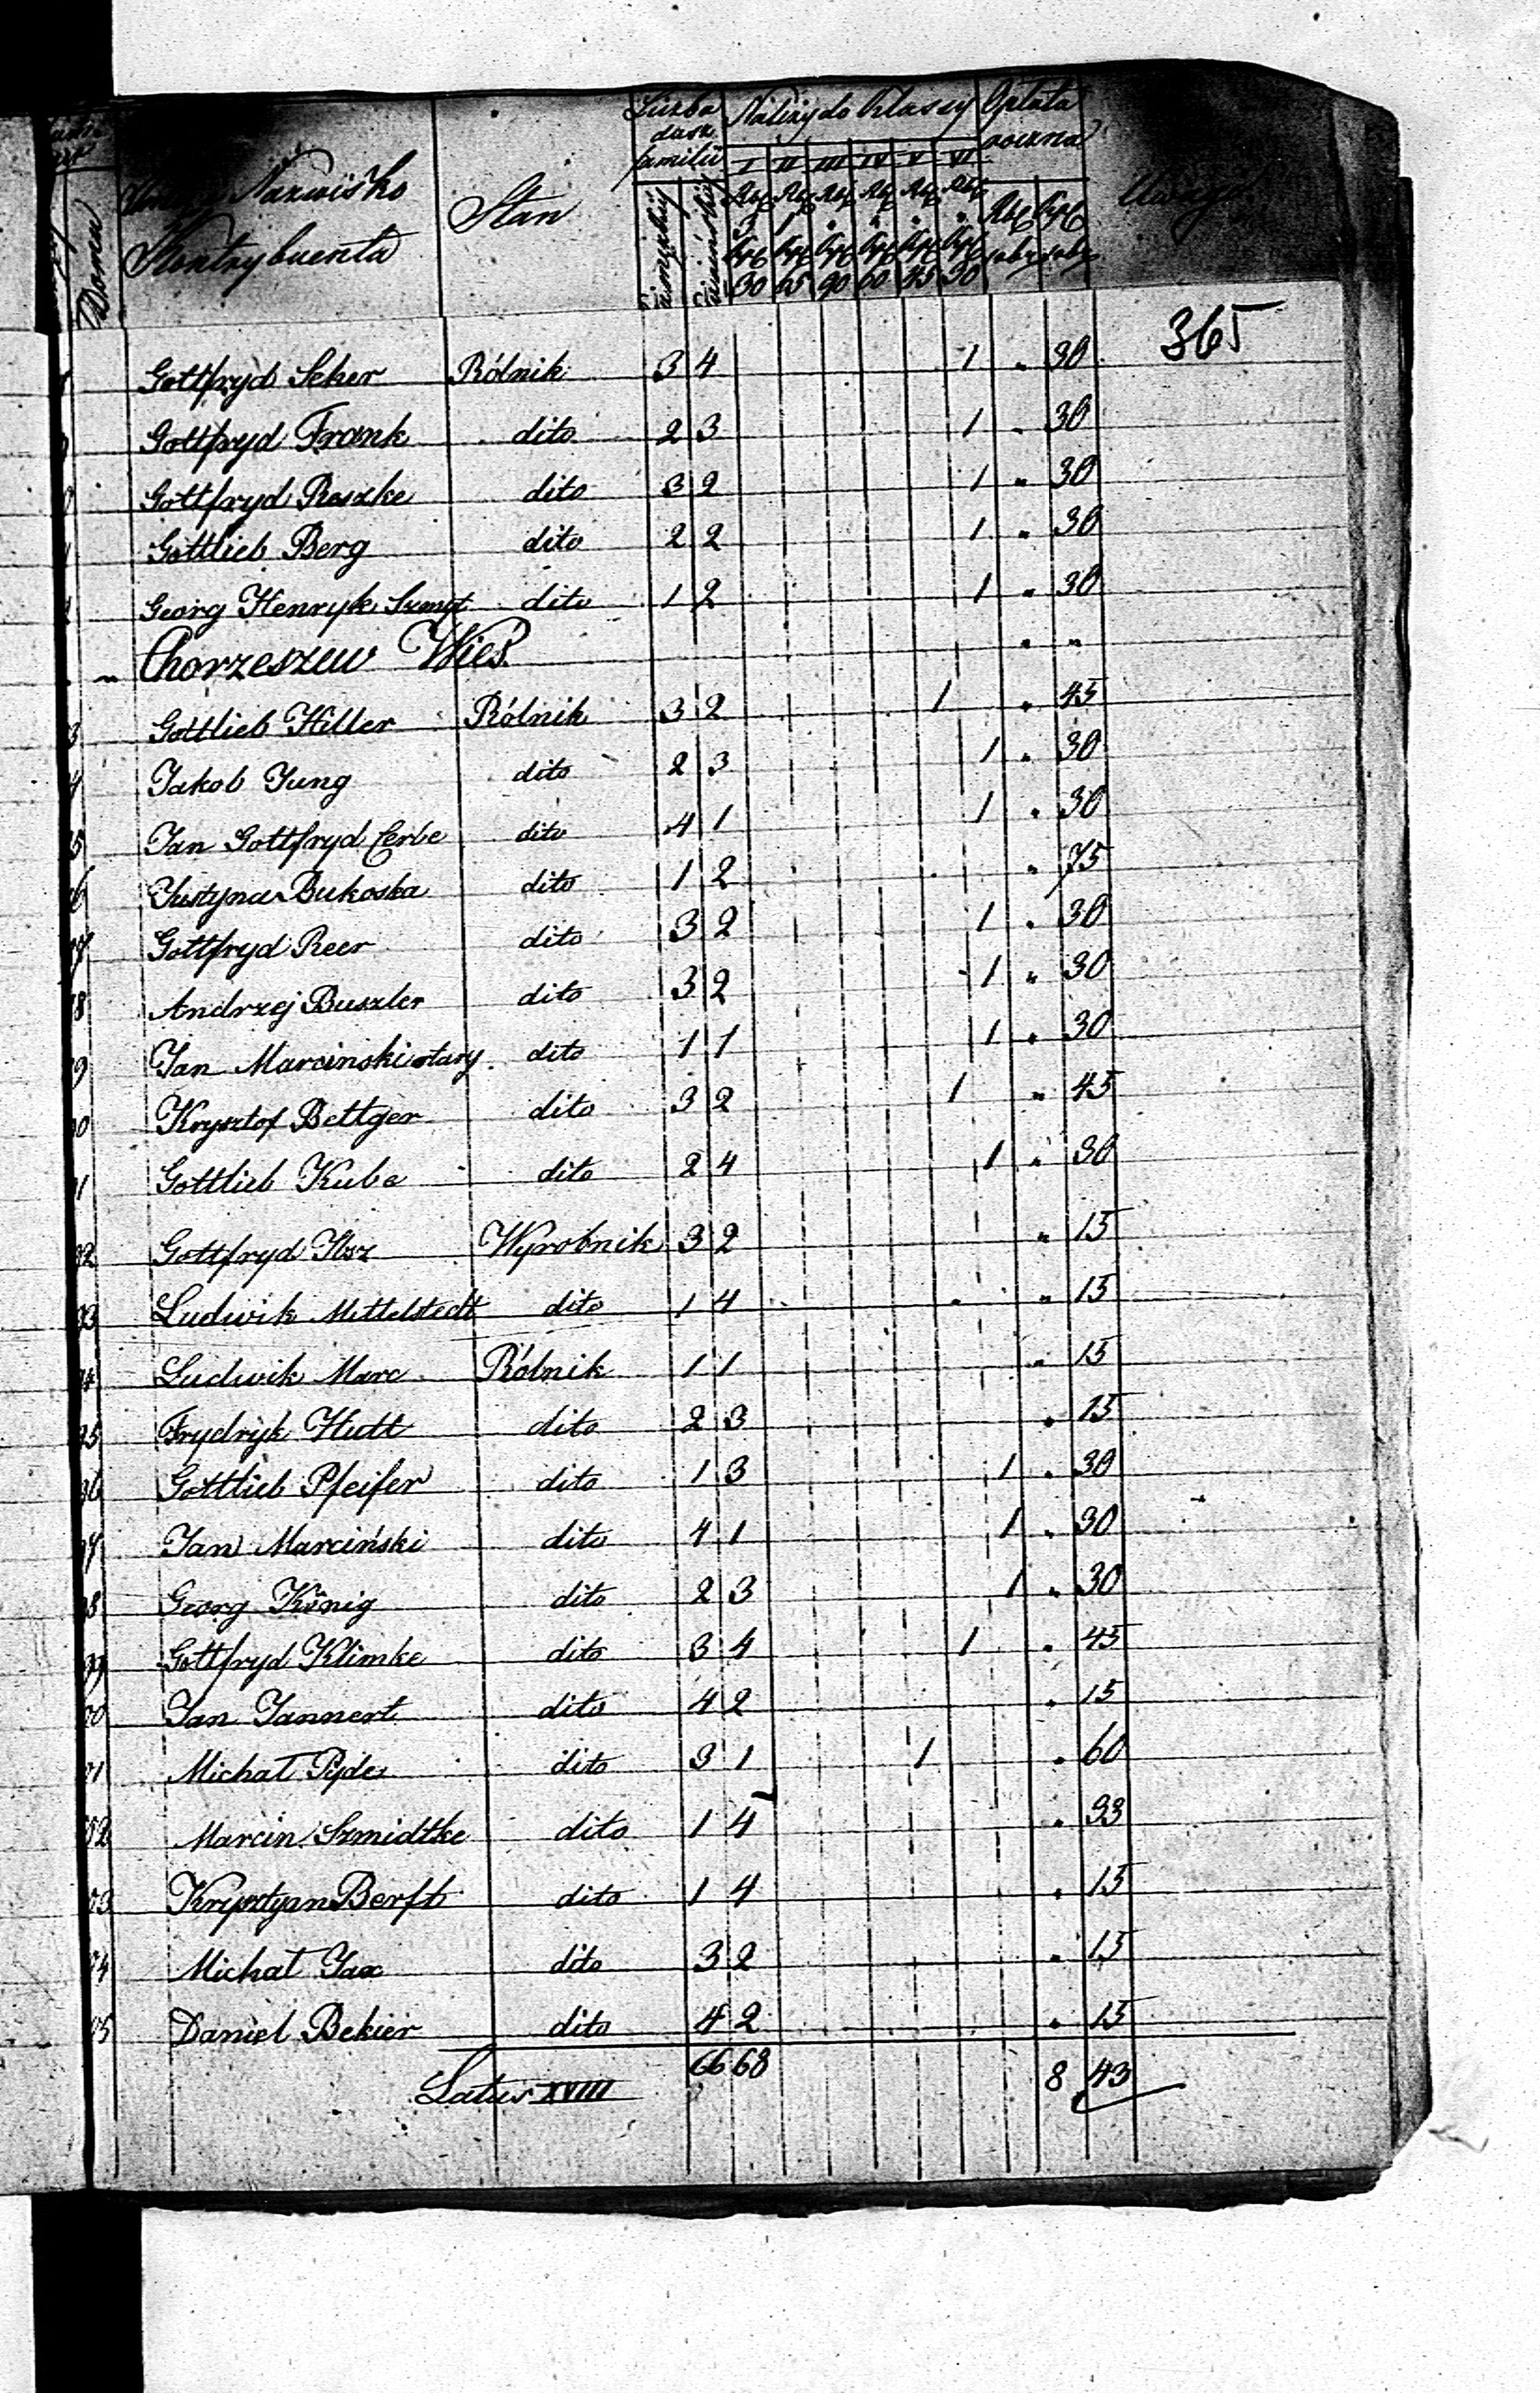 Liczba dusz familii
Należy do Klassy
Opłata roczna
Nazwisko Kontrybuenta
Stan
Domu
I II III IV V VI
Rbę Rbę Rbę Rbę Rbę Rbę
30 45 90 60 45 30
365
Gottfryd Seker Rólnik 3 4 1 " 30
Gottfryd Frank dito 2 3 1 " 30
Gottfryd Reszke dito 3 2 1 " 30
Gottlieb Berg dito 2 2 1 " 30
Georg Henryk Szmyt dito 1 2 1 " 30
" Chorzeszew Wieś " "
Gottlieb Hiller Rólnik 3 2 1 " 45
Jakob Jung dito 2 3 1 " 30
Jan Gottfryd Cerbe dito 4 1 1 " 30
Justyna Bukoska dito 1 2 " 75
Gottfryd Reer dito 3 2 1 " 30
Andrzej Buszler dito 3 2 1 " 30
Jan Marcinski stary dito 1 1 1 " 30
Krysztof Bettger dito 3 2 1 " 45
Gottlieb Kube dito 2 4 1 " 30
92 Gottfryd Wyrobnik 3 2 " 15
93 Ludwik Mittelstedt dito 1 4 " 15
94 Ludwik Marc Rólnik 1 1 " 15
95 Frydryk Hutt dito 2 3 " 15
96 Gottlieb Pfeifer dito 1 3 1 " 30
97 Jan Marciński dito 4 1 1 " 30
98 Georg König dito 2 3 1 " 30
99 Gottfryd Klimke dito 3 4 1 " 45
00 Jan Jannert dito 4 2 " 15
01 Michał Pyde dito 3 1 1 " 60
02 Marcin Szmidtke dito 1 4 " 93
03 Krysztyan Berft dito 1 4 " 15
04 Michał Jax dito 3 2 " 15
05 Daniel Bekier dito 4 2 " 15
Latus XVIII 66 68 8 43